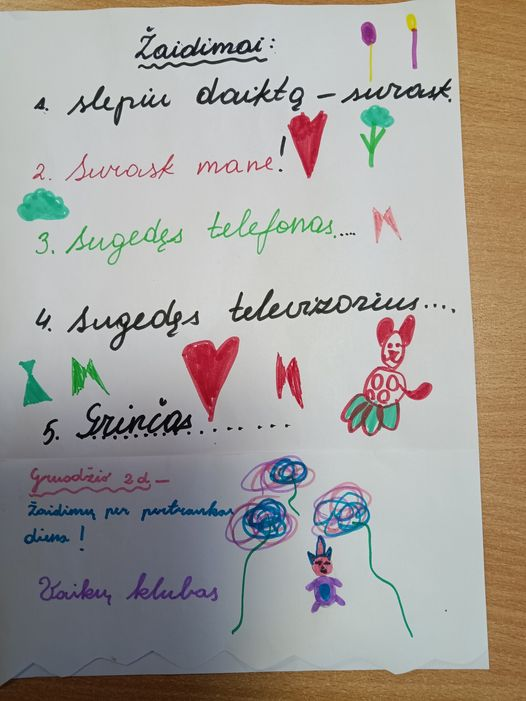 Žaidimai:
1. slepiu daiktą – surask.
2. Surask mane!
3. Sugedęs telefonas....
4. Sugedęs televizorius....
5. Grinčas.......
Gruodžio 2 d –
Žaidimų per pertraukas
diena!
Vaikų klubas